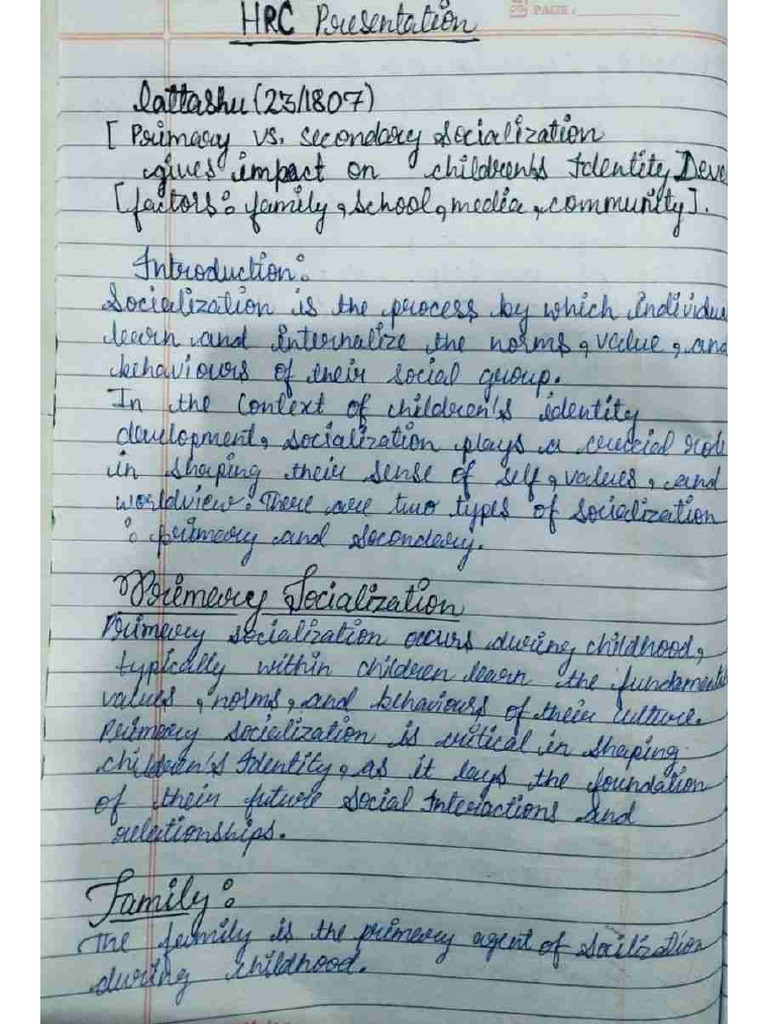 PAGE:
HRC Presentation
Lattashu (23/1807)
[ Primary vs. secondary socialization
gives impact on children's Identity Deve
[factors: family, school, media, community].
Introduction:
Socialization is the process by which individu
learn and internalize the norms, value, and
behaviours of their social group.
In the context of children's identity
development, socialization plays a crucial role
in shaping their sense of self, values, and
worldview. There are two types of socialization
: primary and secondary.
Primary Socialization
Primary socialization occurs during childhood,
typically within children learn the fundamental
values, norms, and behaviours of their culture.
Primary socialization is critical in shaping
children's Identity, as it lays the foundation
of their future social Interactions and
relationships.
Family:
The family is the primary agent of socilization
during childhood.